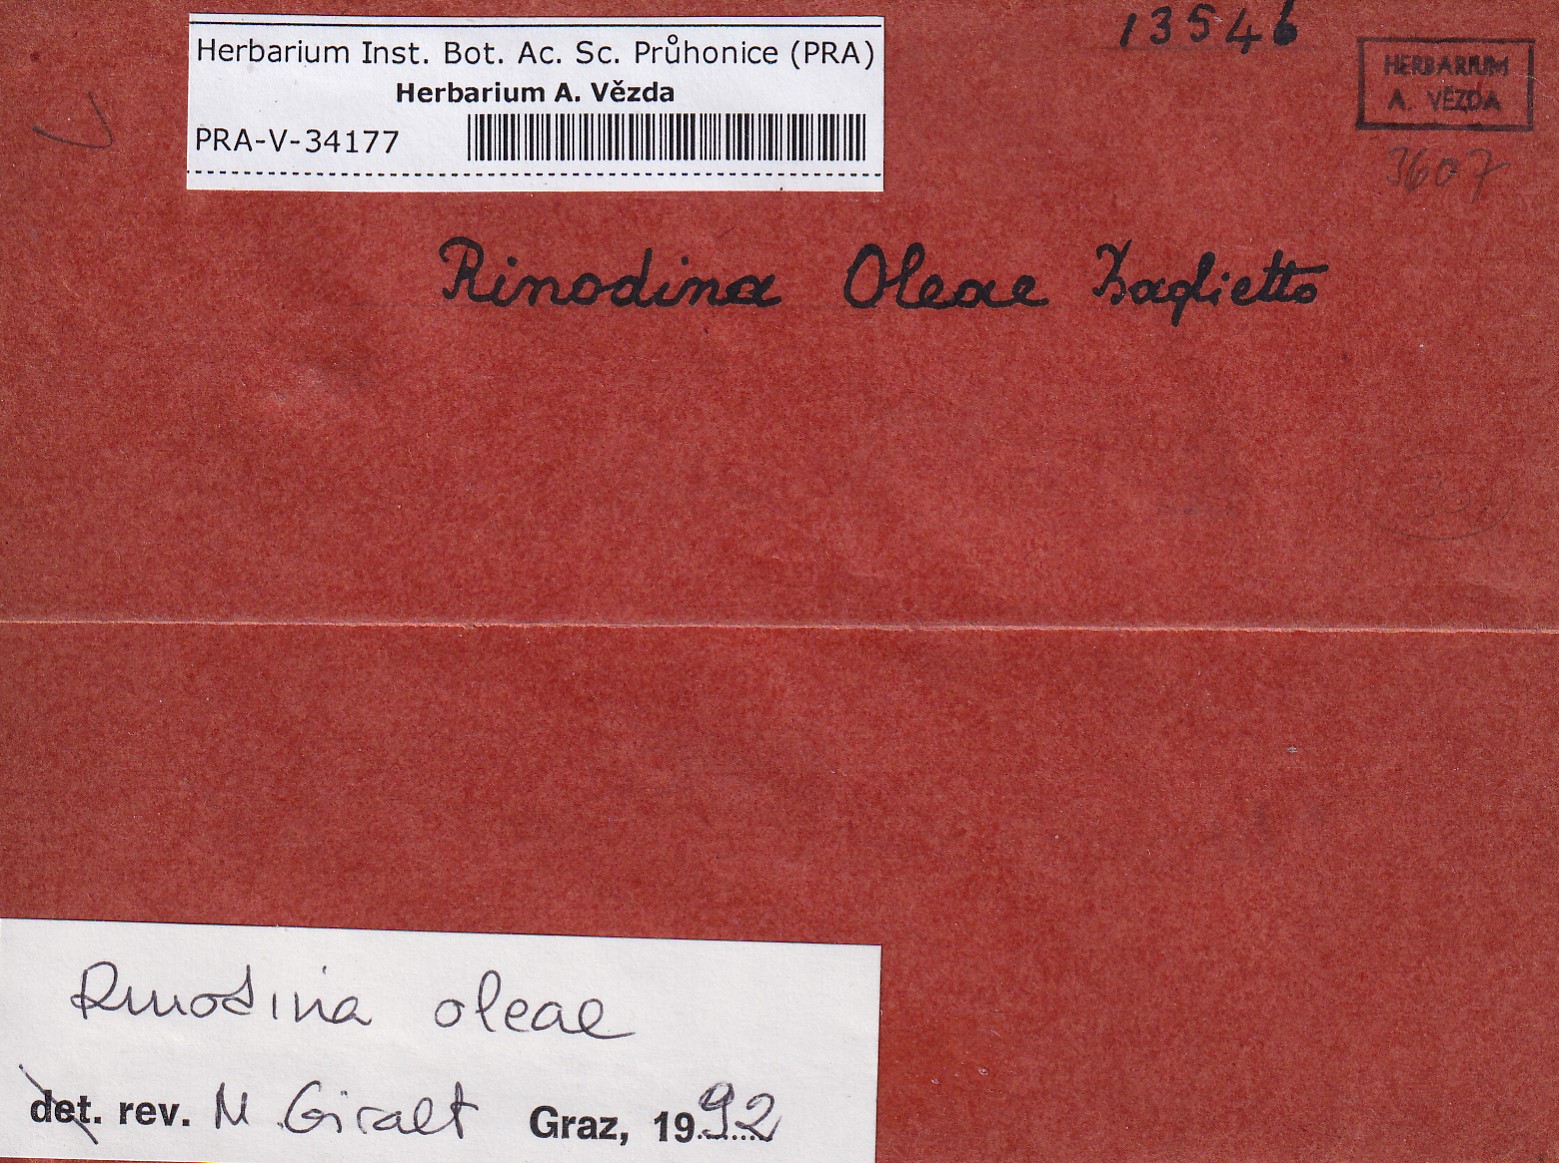 13546
Herbarium Inst. Bot. Ac. Sc. Průhonice (PRA)
Herbarium A. Vězda
PRA-V-34177
HERBARIUM
A. VĚZDA
3607
Rinodina Oleae Baglietto
Rinodina oleae
det. rev. M. Giralt Graz, 1992